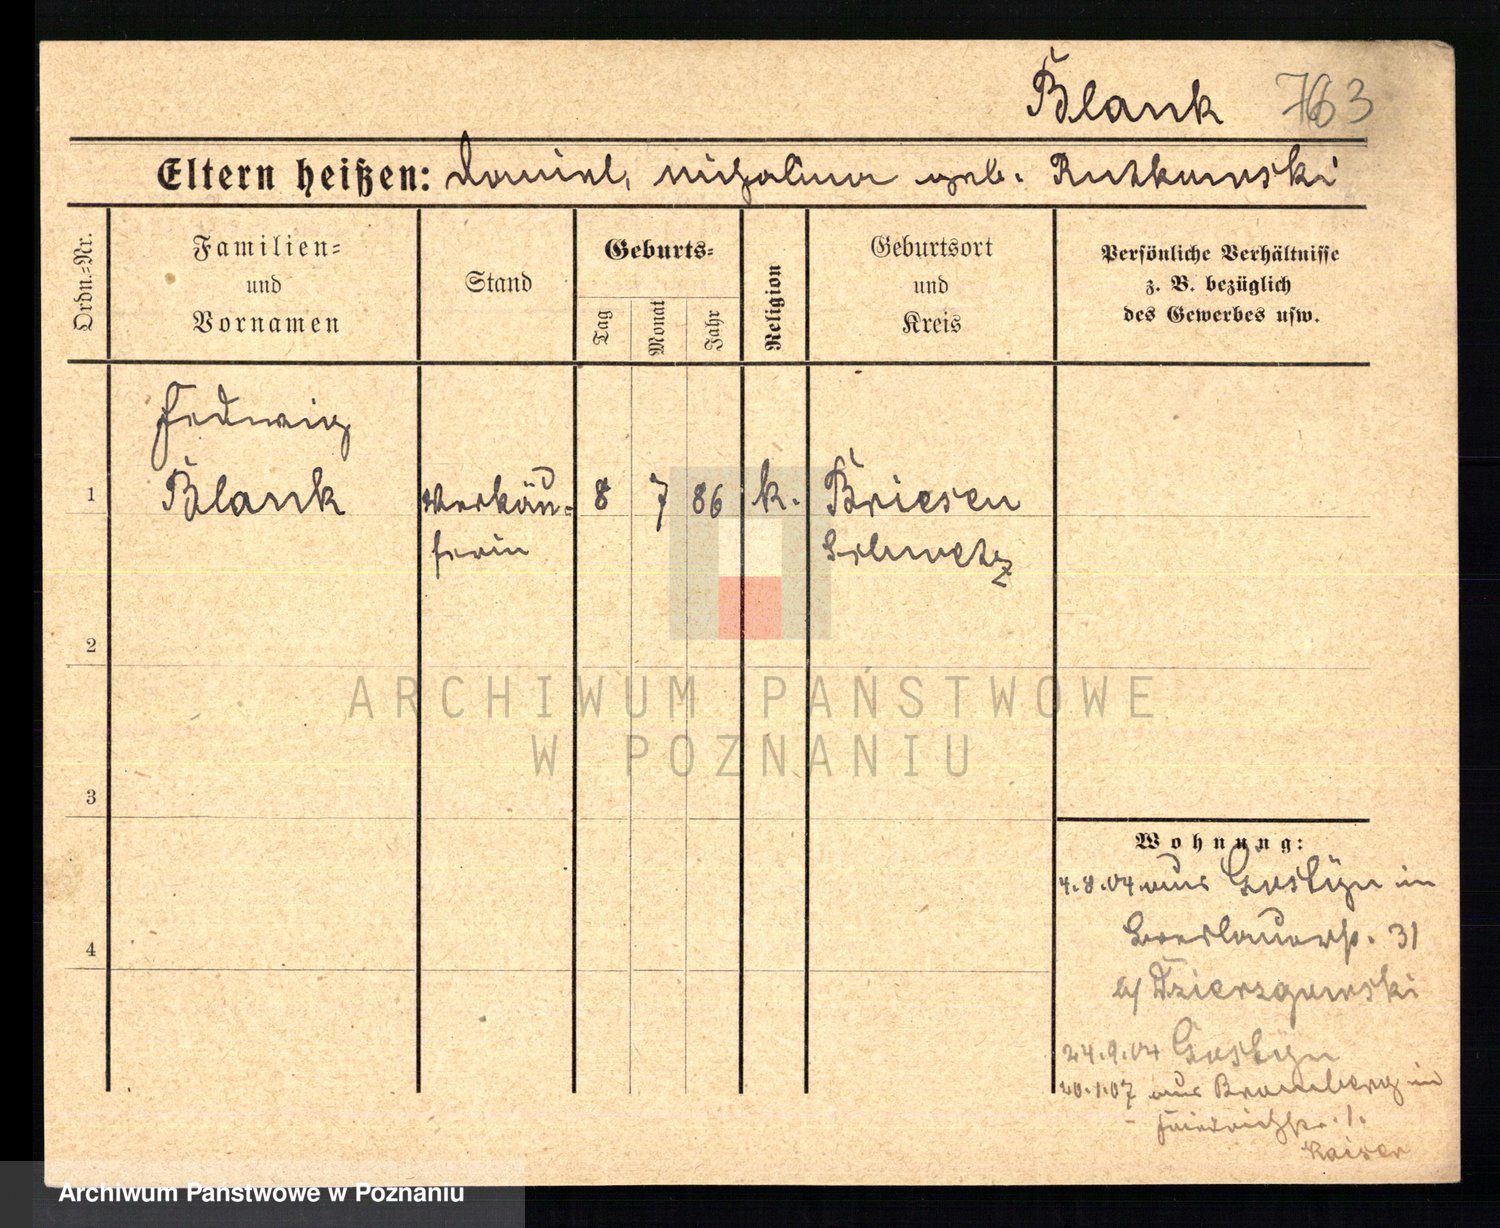 Blank 763
Eltern heißen: Daniel, Michalina geb. Rutkowski
Ordn.=Nr.
Familien=
und
Vornamen
Stand
Geburts=
Tag
Monat
Jahr
Religion
Geburtsort
und
Kreis
Persönliche Verhältnisse
z. B. bezüglich
des Gewerbes usw.
Hedwig
1 Blank Verkäu- 8 7 86 k. Briesen
ferin Schwetz
2
3
4
Wohnung:
4.8.04 aus Gostyn in
Breslauerstr. 31
b/ Dzierzgowski
24.9.04 Gostyn
20.1.07 aus Bromberg in
Friedrichstr. 1.
Kaiser
ARCHIWUM PAŃSTWOWE
W POZNANIU
Archiwum Państwowe w Poznaniu